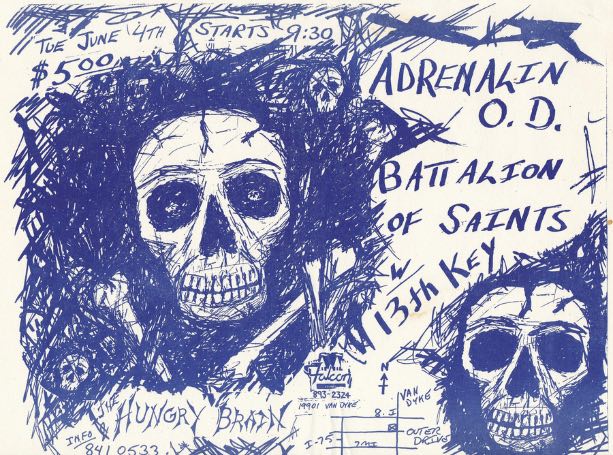 TUE JUNE 4TH STARTS 9:30
$5.00
ADRENALIN
O.D.
BATTALION
OF SAINTS
W/
13th KEY
Falcon
893-2324
19901 VAN DYKE
N
VAN
DYKE
8 MI
OUTER
DRIVE
I-75
7 MI
THE
HUNGRY BRAIN
INFO
841 0533